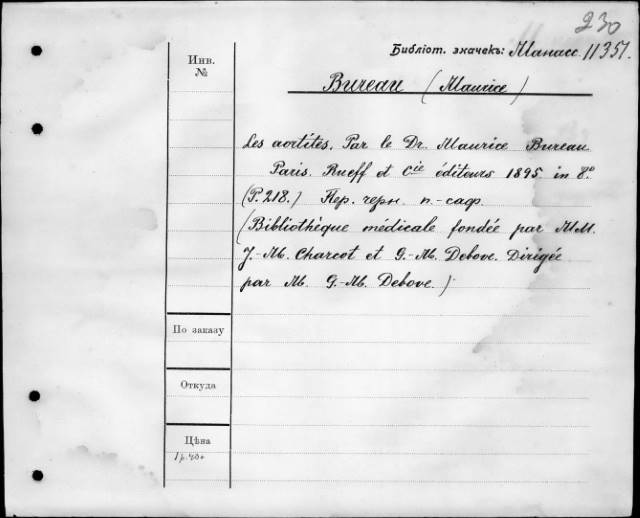 230
Библіот. значекъ: Манасс. 11351.
Инв.
№
Bureau (Maurice)
Les aortites. Par le Dr. Maurice Bureau
Paris. Rueff et Cie éditeurs 1895 in 8.º
(P. 218.) Пер. черн. п.-саф.
(Bibliothèque médicale fondée par MM.
J.-M. Charcot et G.-M. Debove. Dirigée
par M. G.-M. Debove.)
По заказу
Откуда
Цѣна